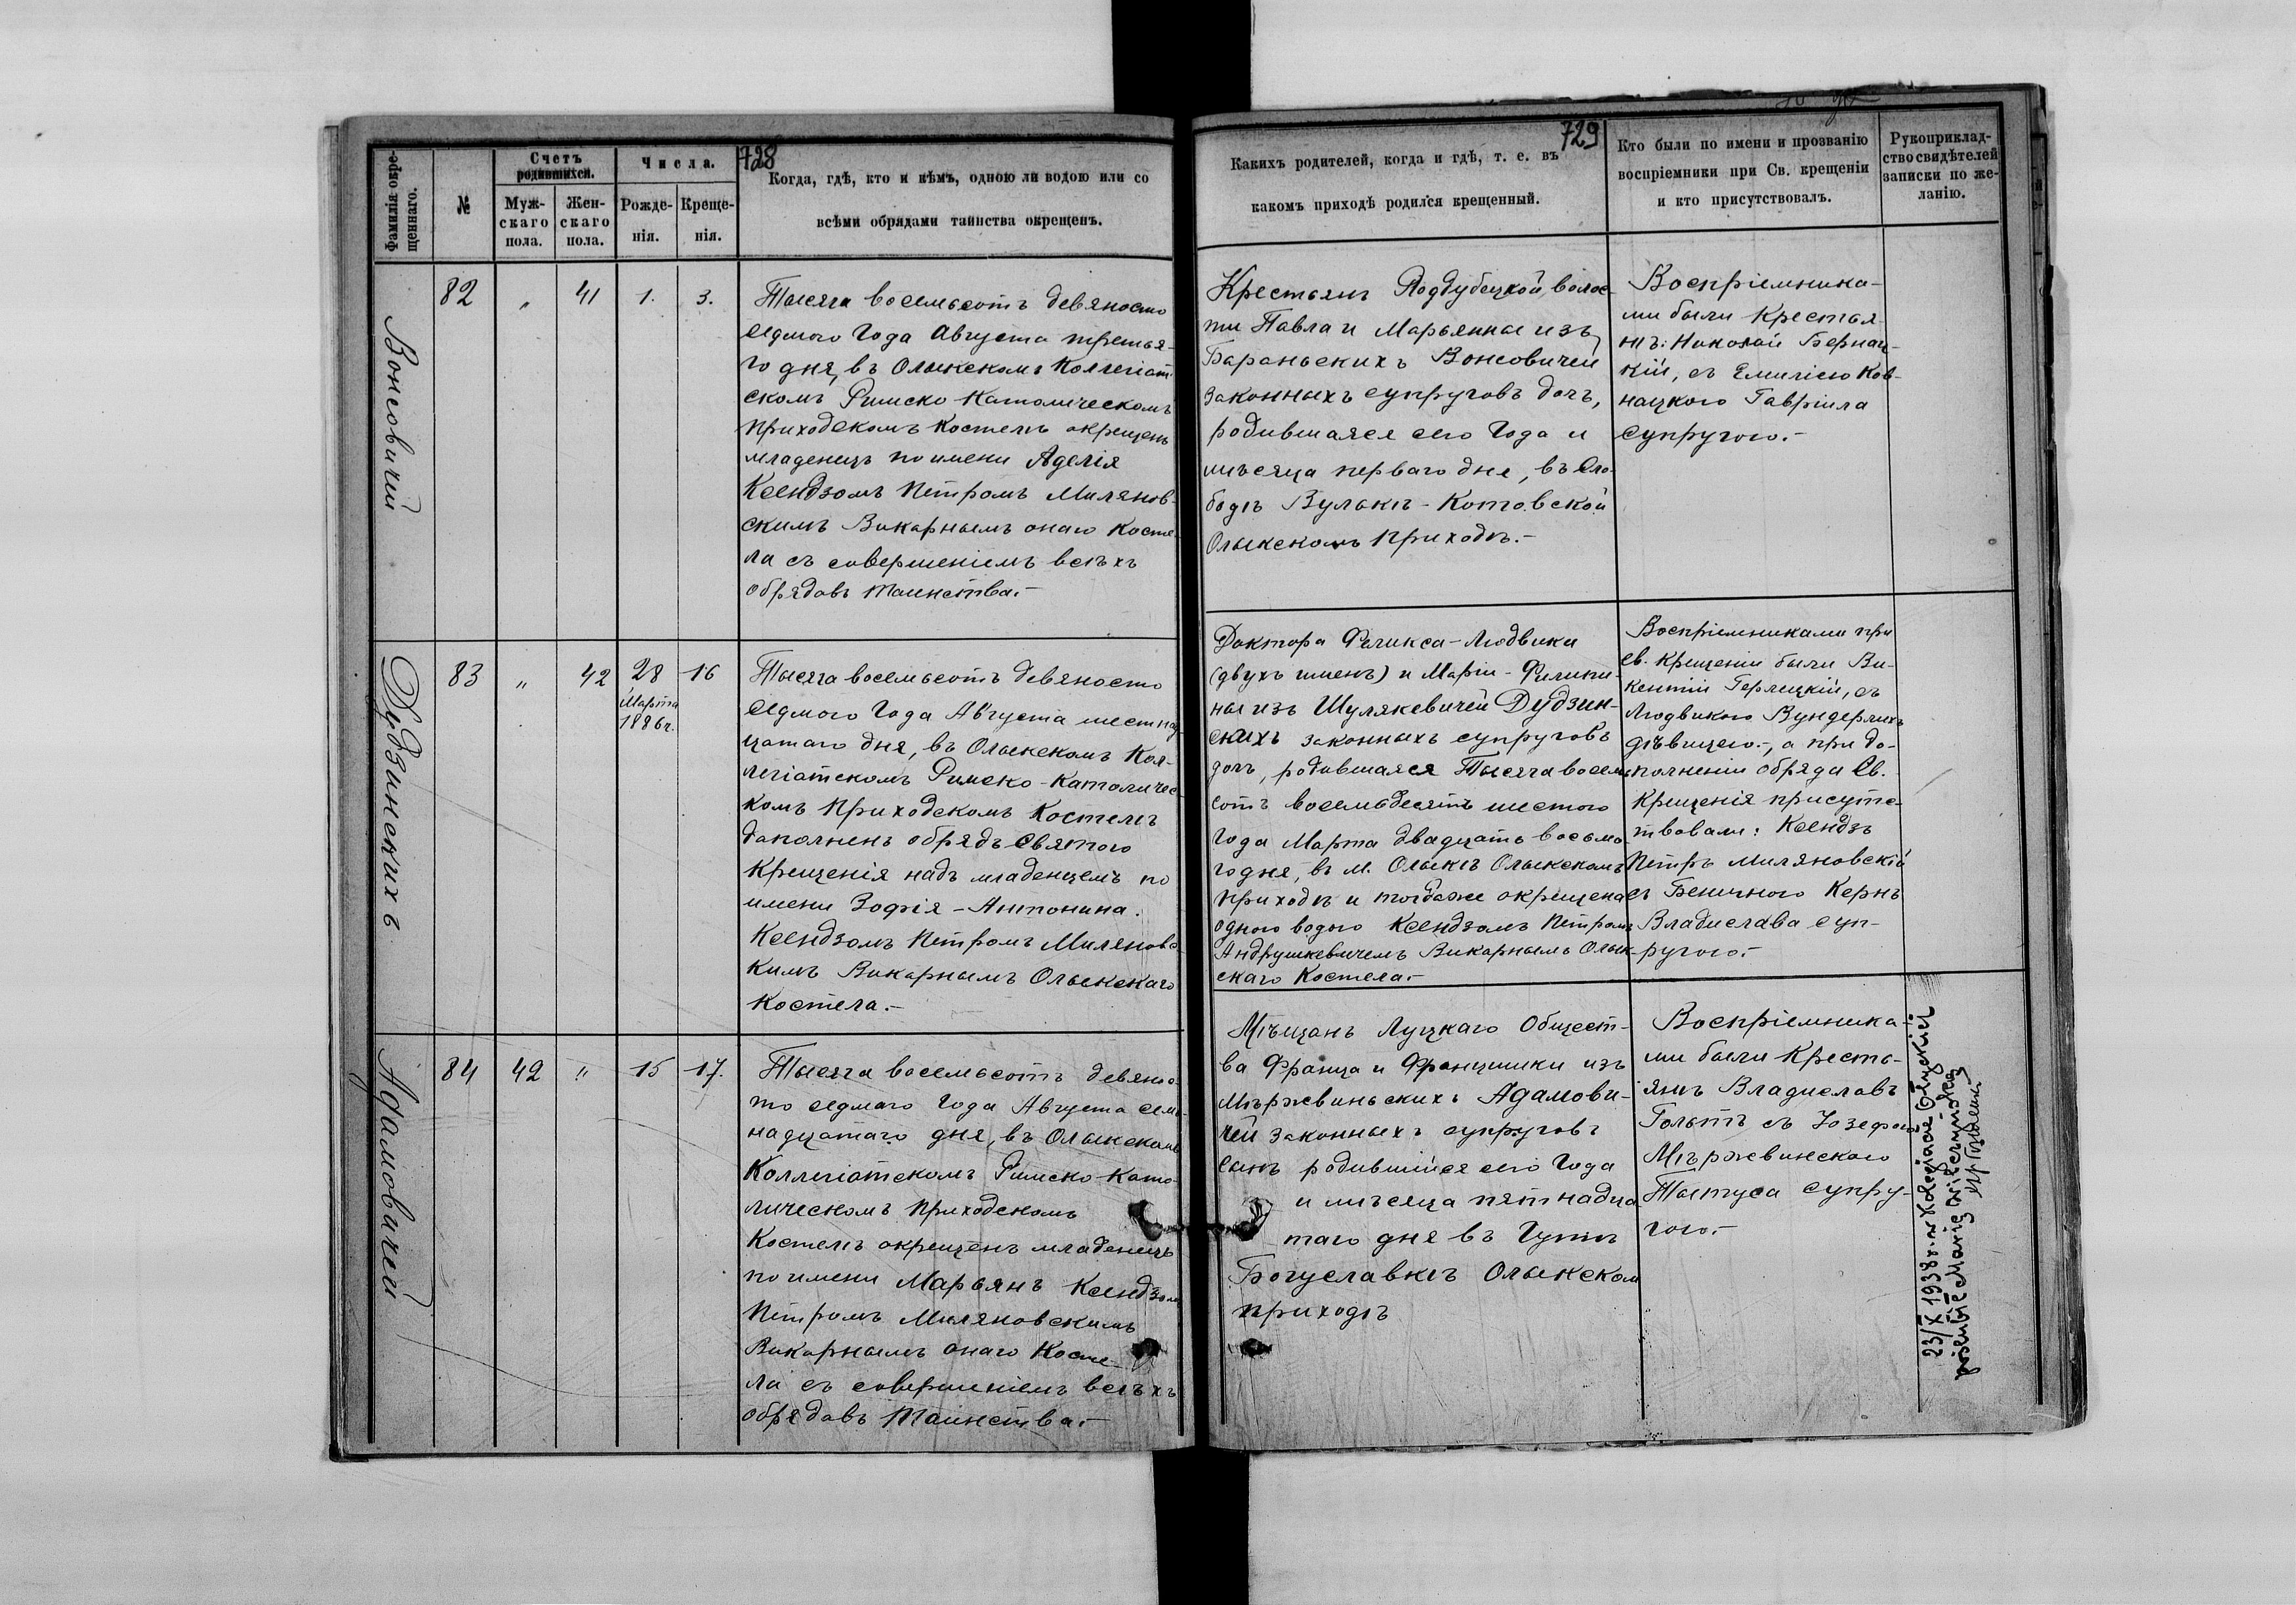 728
Фамилія окре-
щеннаго.
№
Счетъ
родившихся.
Муж-
скаго
пола.
Жен-
скаго
пола.
Числа.
Рожде-
нія.
Креще-
нія.
Когда, гдѣ, кто и кѣмъ, одною ли водою или со
всѣми обрядами таинства окрещенъ.
Вонсовичей
82
„
41
1.
3.
Тысяча восемьсотъ девяносто
седмого Года Августа третья-
го дня, въ Олыкскомъ Коллегіат-
скомъ Римско-Католическомъ
приходскомъ Костелѣ окрещенъ
младенецъ по имени Аделія
Ксендзомъ Петромъ Милянов-
скимъ Викарнымъ онаго Косте-
ла съ совершеніемъ всѣхъ
обрядовъ Таинства.-
Дудзинскихъ
83
„
42
28
Марта
1886 г.
16
Тысяча восемьсотъ девяносто
Седмого Года Августа шестнад-
цатаго дня, въ Олыкскомъ Кол-
легіатскомъ Римско-Католичес-
комъ Приходскомъ Костелѣ
дополненъ обрядъ Святого
Крещенія надъ младенцемъ по
имени Зофія-Антонина.
Ксендзомъ Петромъ Миляновс-
кимъ Викарнымъ Олыкскаго
Костела.-
Адамовичей
84
42
„
15
17.
Тысяча восемьсотъ девянос-
то седмаго Года Августа сем-
надцатаго дня, въ Олыкскомъ
Коллегіатскомъ Римско-Като-
лическомъ Приходскомъ
Костелѣ окрещенъ младенецъ
по имени Марьянъ Ксендзомъ
Петромъ Миляновскимъ
Викарнымъ онаго Косте-
ла съ совершеніемъ всѣхъ
обрядовъ Таинства.-
729
Какихъ родителей, когда и гдѣ, т. е. въ
какомъ приходѣ родился крещенный.
Кто были по имени и прозванію
воспріемники при Св. крещеніи
и кто присутствовалъ.
Рукоприклад-
ство свидѣтелей
записки по же-
ланію.
Крестьянъ Поддубецкой волос-
ти Павла и Марьянны изъ
Бараньскихъ Вонсовичей
законныхъ супруговъ дочъ,
родившаяся сего Года и
мѣсяца перваго дня, въ Сло-
бодѣ Вулькѣ-Котовской
Олыкскомъ приходѣ.-
Воспріемника-
ми были Крестья-
нъ: Николай Бернац-
кій, съ Емиліею Ков-
нацкого Гавріила
супругою.-
Доктора Феликса-Людвика
(двухъ именъ) и Маріи-Филипи-
ны изъ Шулякевичей Дудзин-
скихъ законныхъ супруговъ
дочъ, родившаяся Тысяча восемь-
сотъ восемьдесятъ шестого
Года Марта двадцать восьмо-
го дня, въ м. Олыкѣ Олыкскомъ
приходѣ и тогдаже окрещена
одною водою Ксендзомъ Петромъ
Андрушкевичемъ Викарнымъ Олык-
скаго Костела.-
Воспріемниками при
св. Крещеніи были Ви-
кентій Герлецкій, съ
Людвикою Вундерлихъ
дѣвицею.-, а при до-
полненіи обряда Св.
Крещенія присутс-
твовали: Ксендзъ
Петръ Миляновскій
съ Бенигною Кернъ
Владислава суп-
ругою.-
Мѣщанъ Луцкаго Общест-
ва Франца и Францишки изъ
Мѣржвиньскихъ Адамови-
чей законныхъ супруговъ
сынъ родившійся сего Года
и мѣсяца пятнадца-
таго дня въ Гутѣ
Богуславкѣ Олыкскомъ
приходѣ
Воспріемника-
ми были Кресть-
янъ Владиславъ
Гольтъ съ Іозефою
Мѣржвинского
Тытуса супру-
гою.-
23/X 1938 r. w Kolegjacie Ołyckiej
poślubił Marię